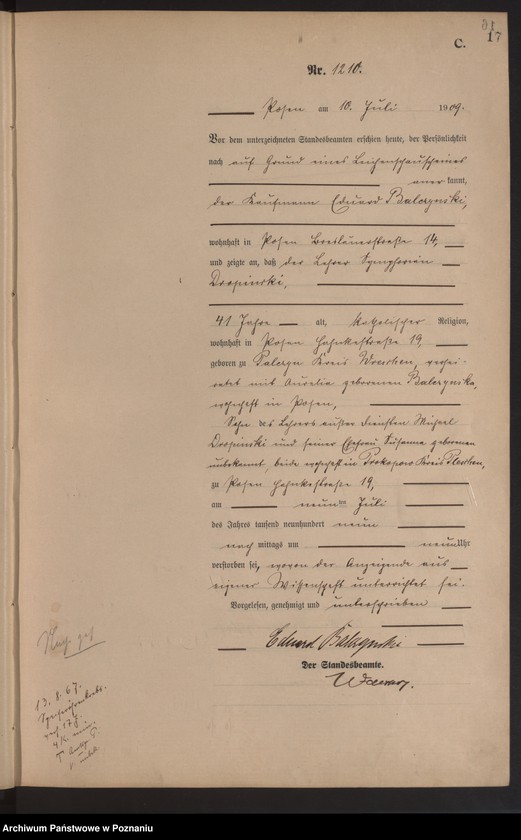 C.
17
Nr. 1210.
Posen am 10. Juli 1909.
Vor dem unterzeichneten Standesbeamten erschien heute, der Persönlichkeit
nach auf Grund eines Leichenschauscheines
anerkannt,
der Kaufmann Eduard Balczynski,
wohnhaft in Posen Breslauerstraße 14,
und zeigte an, daß der Lehrer Symphorian
Dropinski,
41 Jahre alt, katholischer Religion,
wohnhaft in Posen Hohnkestraße 19,
geboren zu Kreis Wreschen, verhei-
ratet mit Aurelia geborenen Balczynska,
wohnhaft in Posen,
Sohn des Lehrers außer Diensten Michael
Dropinski und seiner Ehefrau Susanna geborenen
unbekannt, beide wohnhaft in Prokopow Kreis Pleschen,
zu Posen Hohnkestraße 19,
am neunten Juli
des Jahres tausend neunhundert neun
nach mittags um neun Uhr
verstorben sei, wovon der Anzeigende aus
eigener Wissenschaft unterrichtet sei.
Vorgelesen, genehmigt und unterschrieben
Eduard Balczynski
Der Standesbeamte.
13. 8. 67.
Archiwum Państwowe w Poznaniu